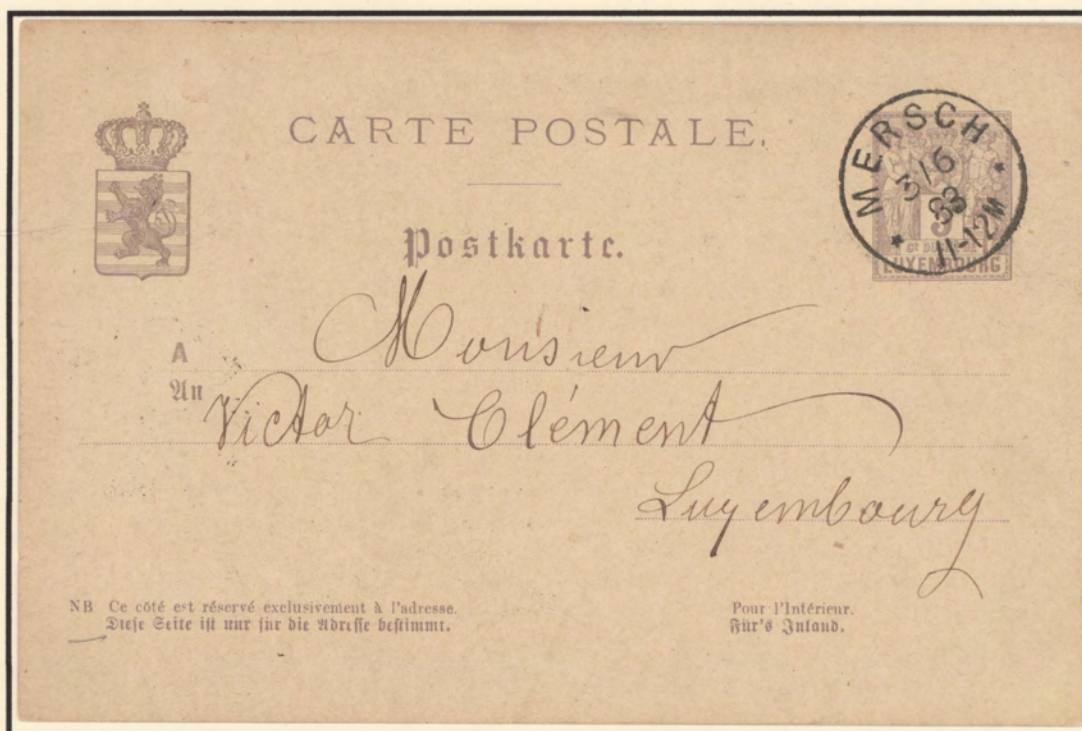 CARTE POSTALE.
Postkarte.
MERSCH
3/6
83
11-12M
5
LUXEMBOURG
A
Monsieur
An
Victor Clément
Luxembourg
NB Ce côté est réservé exclusivement à l'adresse.
Diese Seite ist nur für die Adresse bestimmt.
Pour l'Intérieur.
Für's Inland.